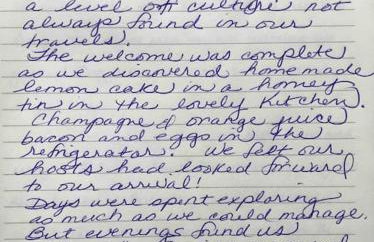 a level off culture not
always found in our
travels.
The welcome was complete
as we discovered homemade
lemon cake in a homey
tin in the lovely kitchen.
Champagne & orange juice
bacon and eggs in the
refrigerator. We felt our
hosts had looked forward
to our arrival!
Days were spent exploring
as much as we could manage.
But evenings found us